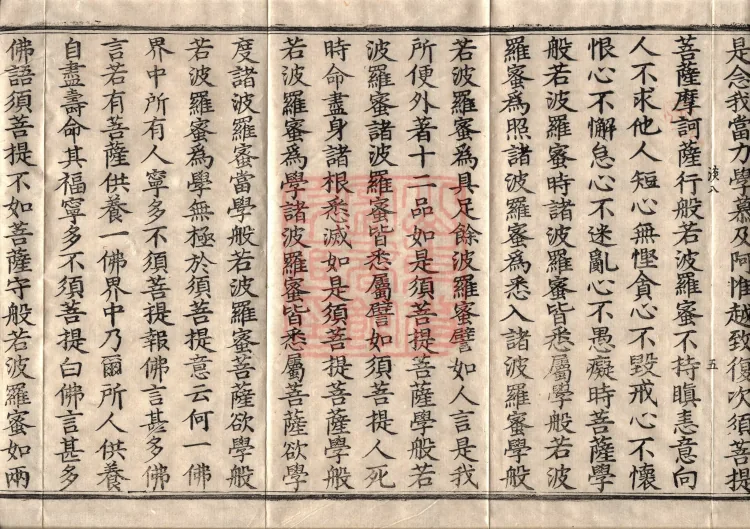 是念我當力學慕及阿惟越致復次須菩提
菩薩摩訶薩行般若波羅蜜不持瞋恚意向
人不求他人短心無慳貪心不毀戒心不懷
恨心不懈怠心不迷亂心不愚癡時菩薩學
般若波羅蜜時諸波羅蜜皆悉屬學般若波
羅蜜為照諸波羅蜜為悉入諸波羅蜜學般
若波羅蜜為具足餘波羅蜜譬如人言是我
所便外著十二品如是須菩提菩薩學般若
波羅蜜諸波羅蜜皆悉屬譬如須菩提人死
時命盡身諸根悉滅如是須菩提菩薩學般
若波羅蜜為學諸波羅蜜皆悉屬菩薩欲學
度諸波羅蜜當學般若波羅蜜菩薩欲學般
若波羅蜜為學無極於須菩提意云何一佛
界中所有人寧多不須菩提報佛言甚多佛
言若有菩薩供養一佛界中乃爾所人供養
自盡壽命其福寧多不須菩提白佛言甚多
佛語須菩提不如菩薩守般若波羅蜜如兩